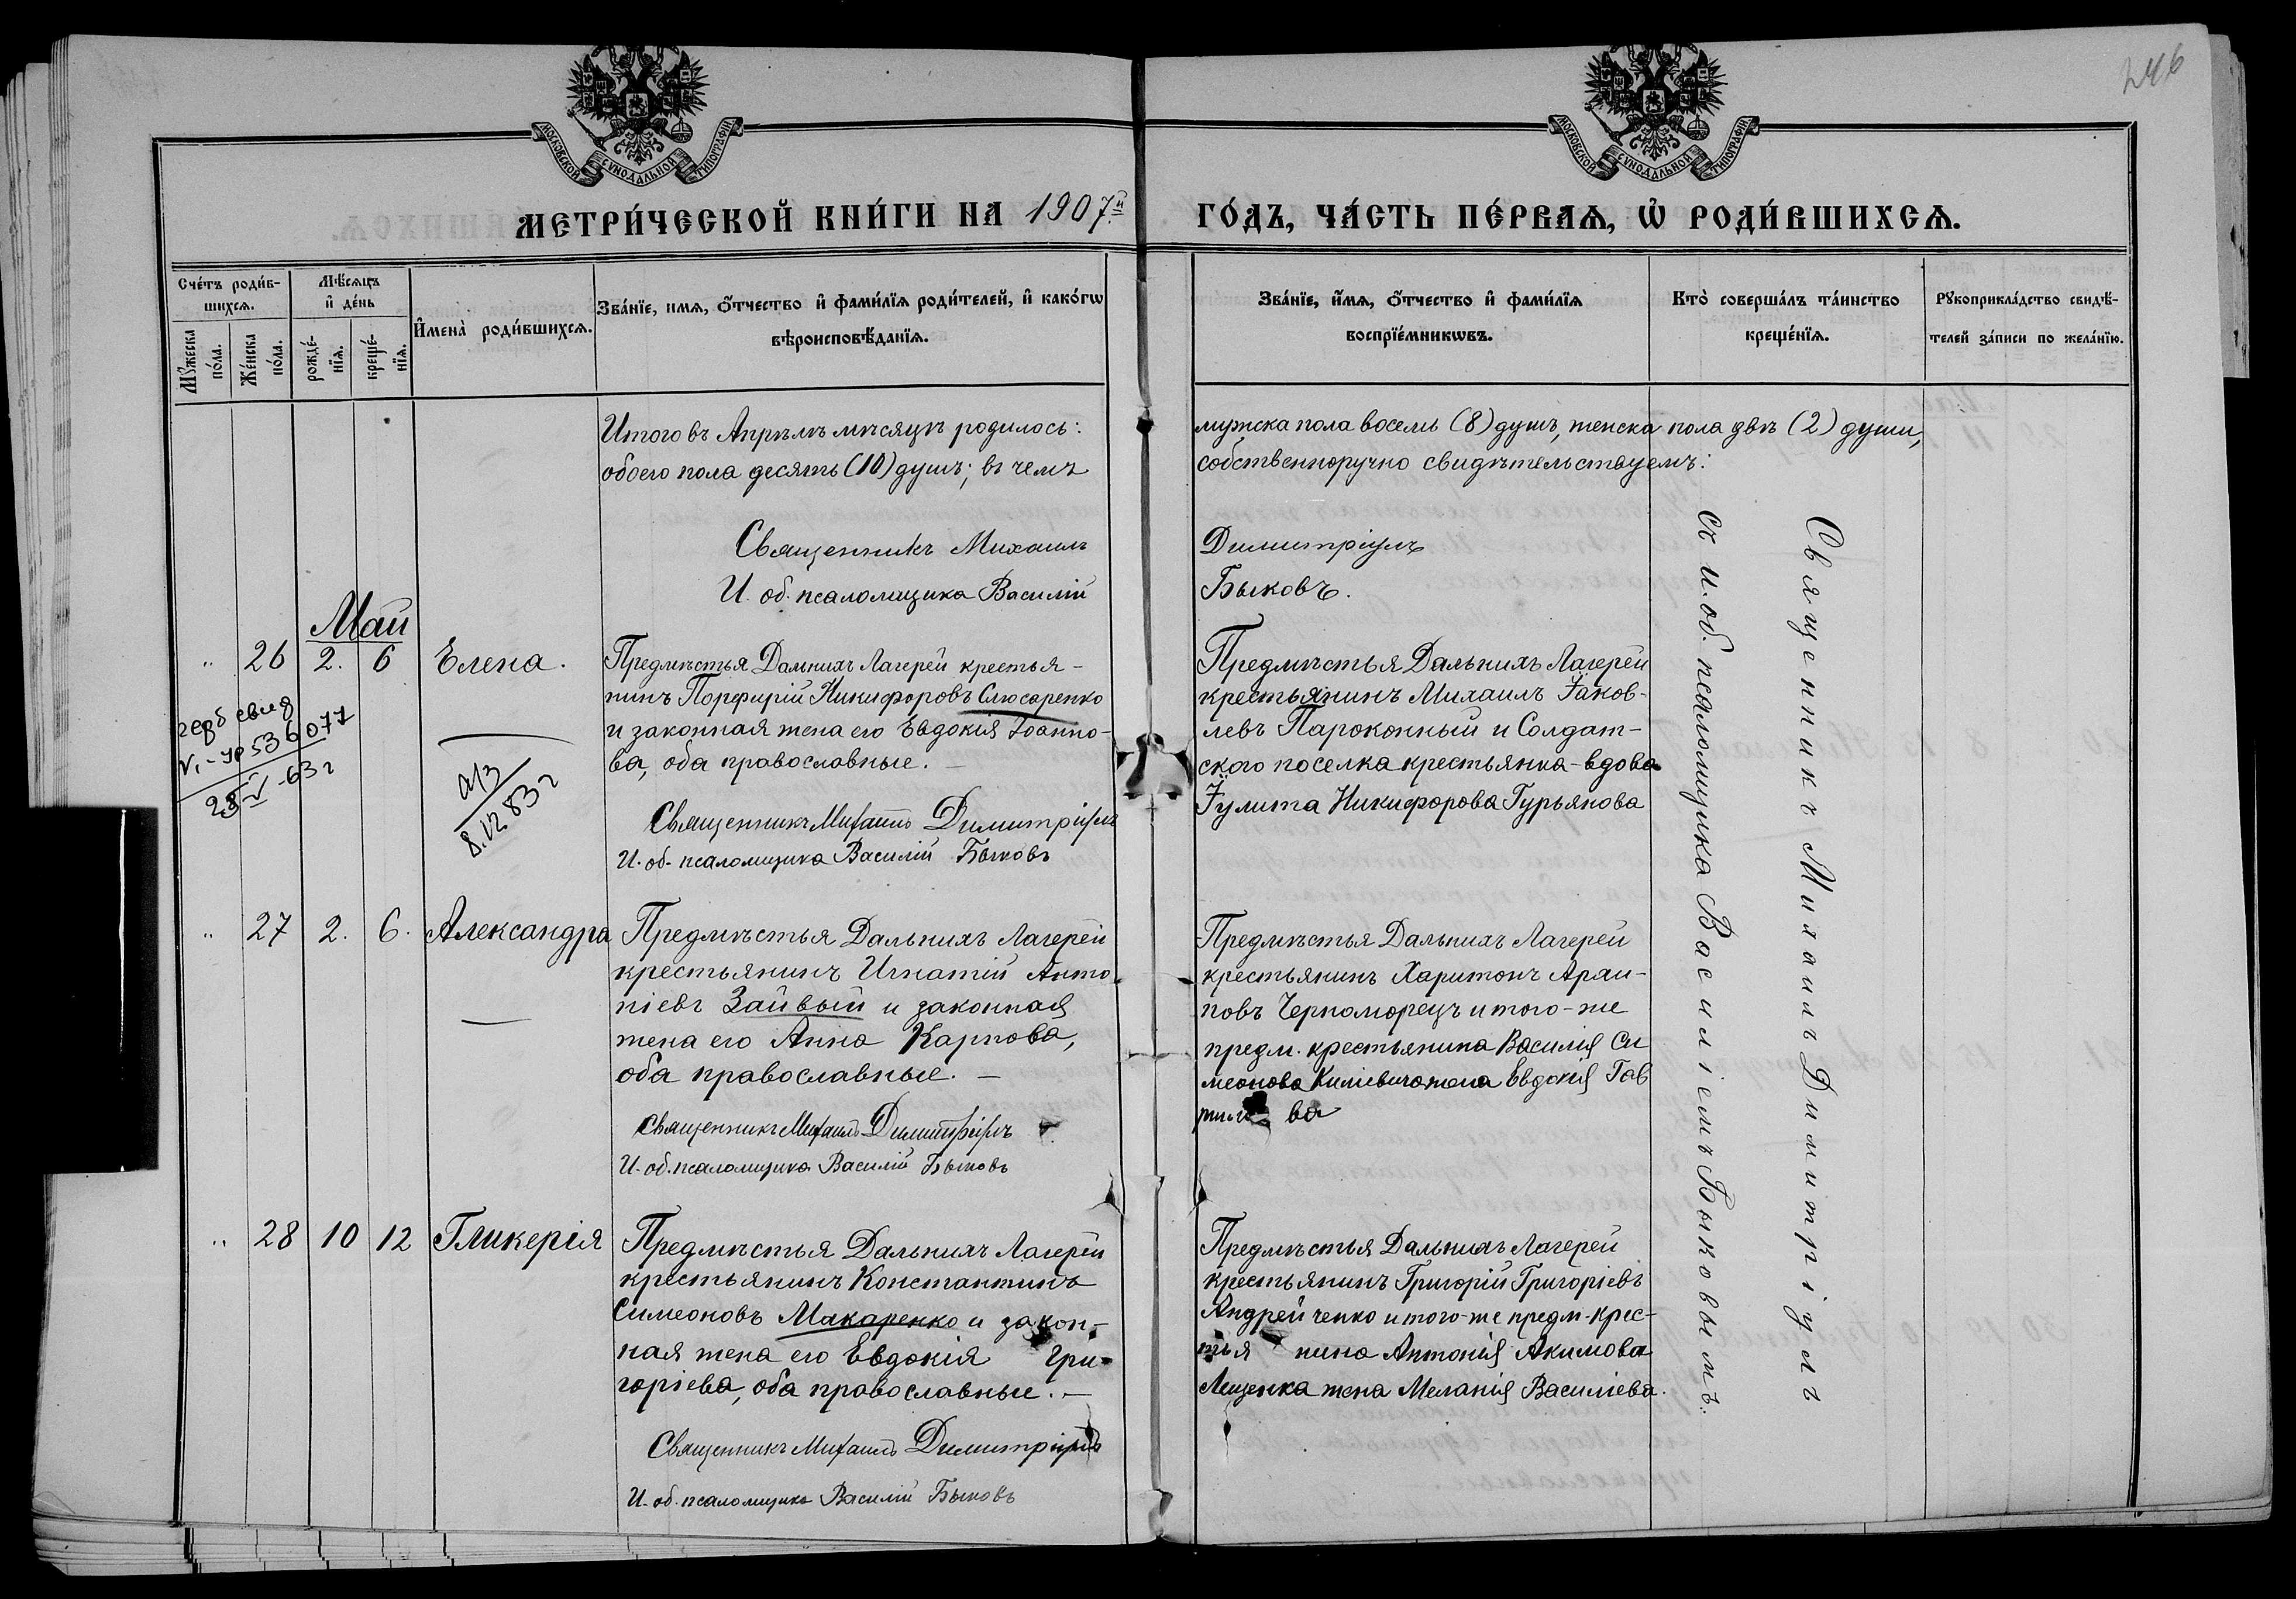 246
МОСКОВСКОЙ СѴНОДАЛЬНОЙ ТИПОГРАФІИ
МОСКОВСКОЙ СѴНОДАЛЬНОЙ ТИПОГРАФІИ
МЕТРИ́ЧЕСКОЙ КНИ́ГИ НА 1907й ГО́ДЪ, ЧА́СТЬ ПЕ́РВАѦ, Ѡ҆ РОДИ́ВШИХСѦ.
Сче́тъ роди́в-
шихсѧ.
Мꙋжеска
по́ла.
Же́нска
по́ла.
Мѣ́сѧцъ
и҆ де́нь
рожде́-
нїѧ.
креще́-
нїѧ.
И҆мена̀ роди́вшихсѧ.
Зва́нїе, имѧ, ѻ҆́тчество и҆ фами́лїѧ роди́телей, и҆ како́гѡ
вѣроисповѣ́данїѧ.
Зва́нїе, и҆́мѧ, ѻ҆́тчество и҆ фами́лїѧ
воспрїе́мникѡвъ.
Кто̀ соверша́лъ та́инство
креще́нїѧ.
Рꙋкоприкла́дство свидѣ́-
телей за́писи по жела́нїю.
Итого въ Апрѣлѣ мѣсяцѣ родилось: мужска пола восемь (8) душъ, женска пола двѣ (2) души,
обоего пола десять (10) душъ; въ чемъ собственноручно свидѣтельствуемъ:
Священникъ Михаилъ Димитріулъ
И. об. псаломщика Василій Быковъ.
Май
" 26 2. 6 Елена.
Предмѣстья Дальнихъ Лагерей крестья-
нинъ Порфирій Никифоровъ Слюсаренко
и законная жена его Евдокія Іоанно-
ва, оба православные. —
Священникъ Михаилъ Димитріулъ
И. об. псаломщика Василій Быковъ
Предмѣстья Дальнихъ Лагерей
крестьянинъ Михаилъ Іаков-
левъ Пароконный и Солдат-
ского поселка крестьянка-вдова
Іулита Никифорова Гурьянова
свид
536077
28-V-63 г
8.12.83 г
" 27 2. 6. Александра
Предмѣстья Дальнихъ Лагерей
крестьянинъ Игнатій Анто-
ніевъ Зайвый и законная
жена его Анна Карпова,
оба православные. —
Священникъ Михаилъ Димитріулъ
И. об. псаломщика Василій Быковъ
Предмѣстья Дальнихъ Лагерей
крестьянинъ Харитонъ Архи-
повъ Черноморецъ и того-же
предм. крестьянина Василія Си
меонова Килиевича жена Евдокія Гав
рило ва
" 28 10 12 Гликерія
Предмѣстья Дальнихъ Лагерей
крестьянинъ Константинъ
Симеоновъ Макаренко и закон-
ная жена его Евдокія Гри-
горіева, оба православные. —
Священникъ Михаилъ Димитріулъ
И. об. псаломщика Василій Быковъ
Предмѣстья Дальнихъ Лагерей
крестьянинъ Григорій Григоріевъ
Андрейченко и того-же предм. крес-
тья нина Антонія Акимова
Лещенка жена Меланія Василіева.
Священникъ Михаилъ Димитріулъ
съ и. об. псаломщика Василіемъ Быковымъ.